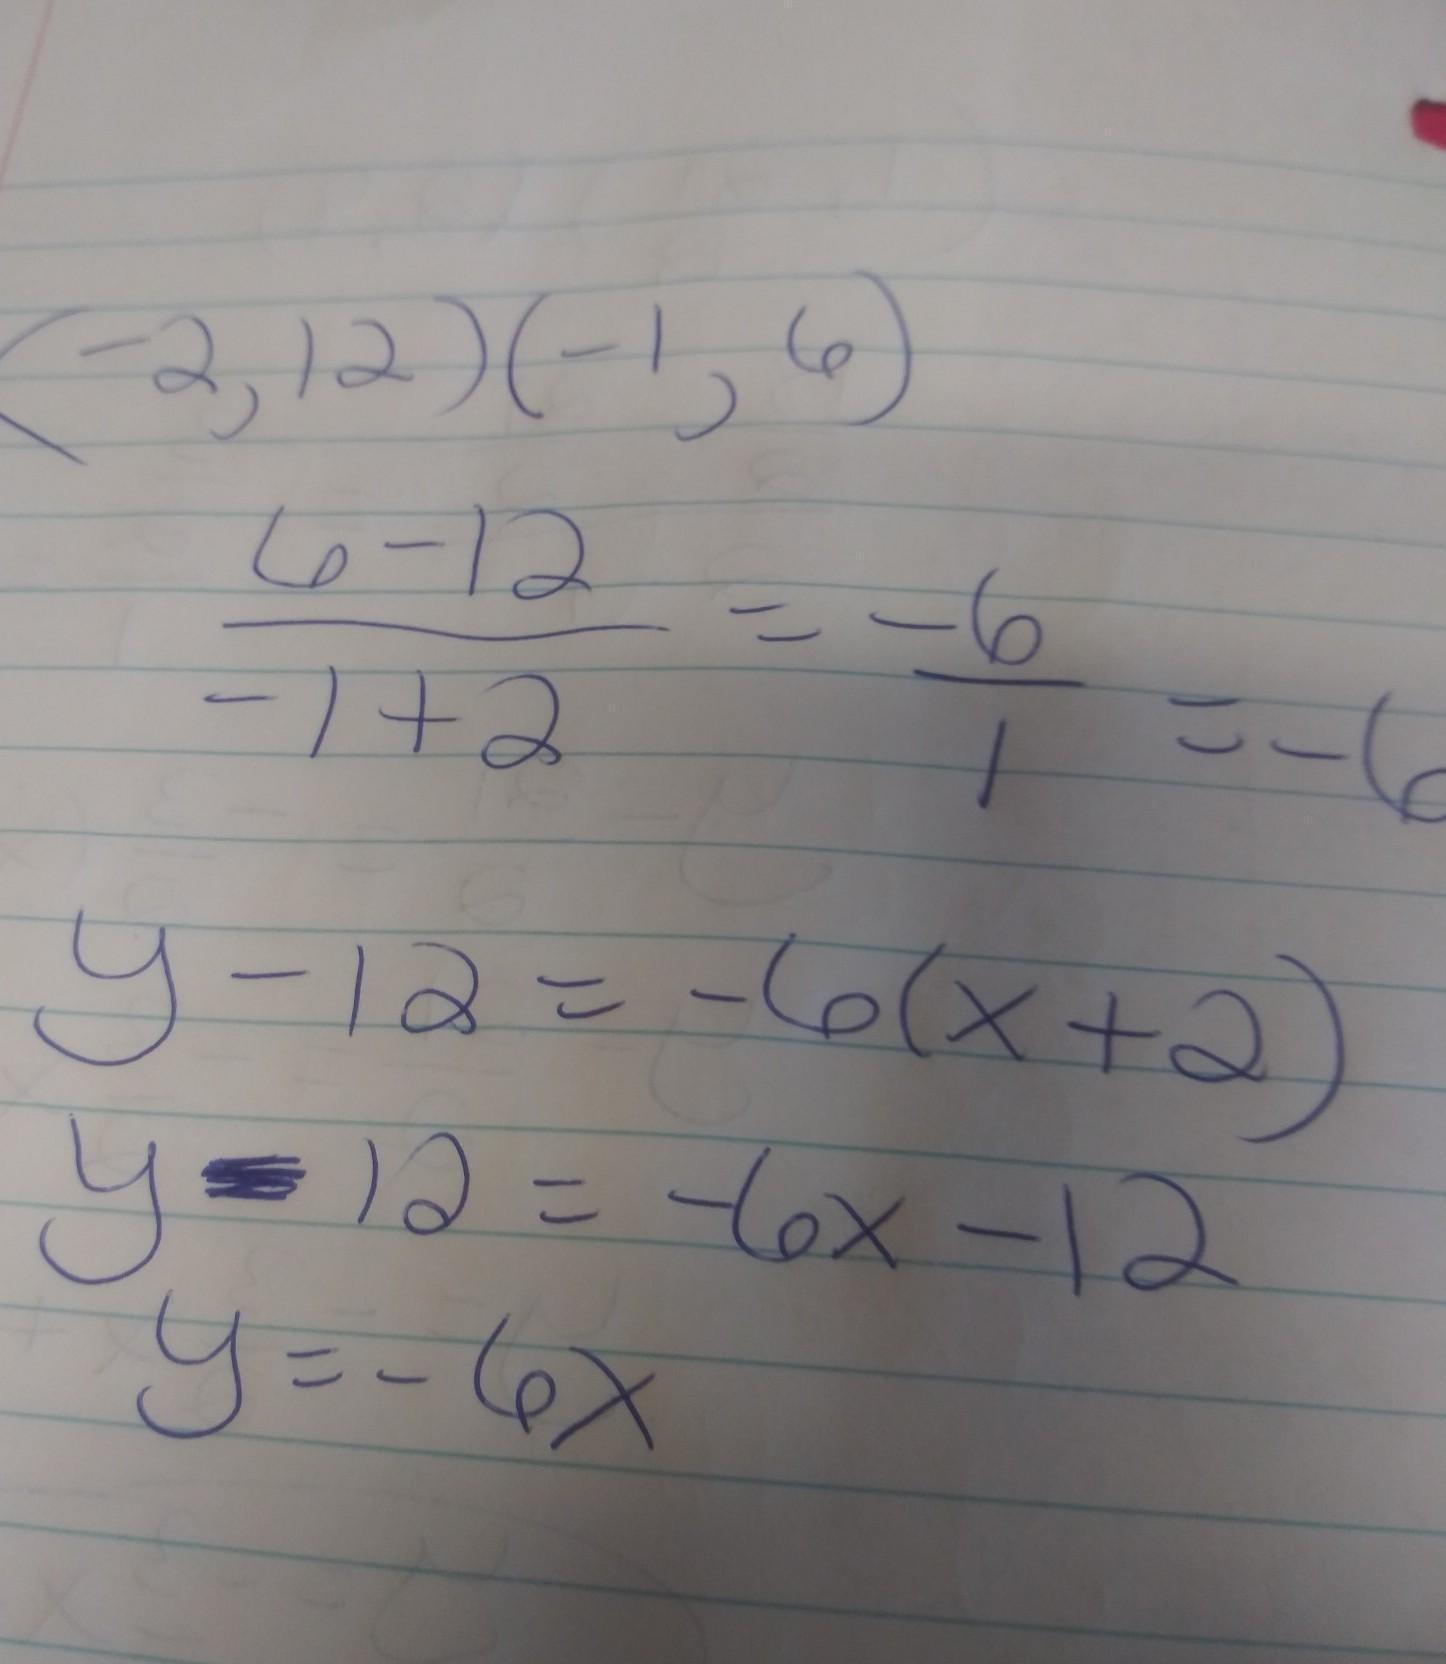 (-2,12)(-1,6)
6-12
-1+2
= -6
1
= -6
y - 12 = -6(x+2)
y - 12 = -6x - 12
y = -6x